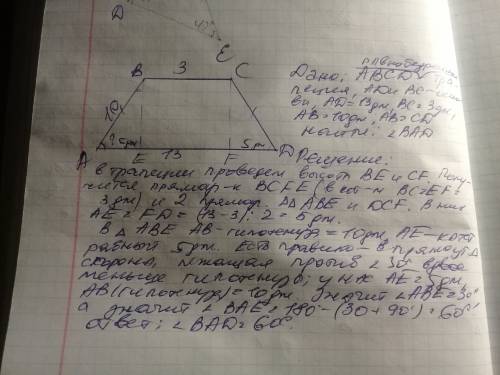 D
E
B 3 C
10
5дм
5 дм
A E 13 F D
равнобедренная
Дано: ABCD - тра-
пеция, AD и BC - осно-
ви, AD = 13дм, BC = 3дм,
AB = 10дм, AB = CD
Найти: ∠BAD
Решение:
в трапеции проведем высоты BE и CF. Полу-
чится прямоуг-к BCFE (в кот-м BC=EF=
3дм) и 2 прямоуг. ΔΔ ABE и DCF. В них
AE = FD = (13-3):2 = 5дм.
В Δ ABE AB - гипотенуза = 10дм, AE - катет
равный 5дм. Есть правило - в прямоуг Δ
сторона, лежащая против ∠30° вдвое
меньше гипотенузы, у нас AE = 5дм,
AB (гипотенуза) = 10дм, значит ∠ABE = 30°
а значит ∠BAE = 180° - (30 + 90°) = 60°
ответ: ∠BAD = 60°.